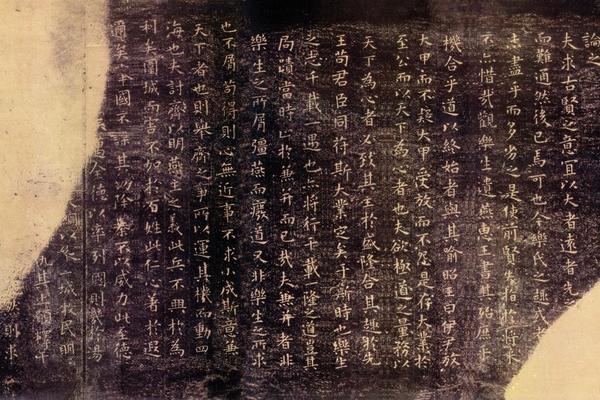 論之
夫求古賢之意宜以大者遠者先之
而難通然後已焉可也今樂氏之趣或
未盡乎而多劣之是使前賢失指於將來
不亦惜哉觀樂生遺燕惠王書其殆庶乎
機合乎道以終始者與其喻昭王曰伊尹放
大甲而不疑大甲受放而不怨是存大業於
至公而以天下為心者也夫欲極道之量務以
天下為心者必致其主於盛隆合其趣於先
王苟君臣同符斯大業定矣于斯時也樂生
之志千載一遇也亦將行千載一隆之道豈其
局蹟當時止於兼并而已哉夫兼并者非
樂生之所屑彊燕而廢道又非樂生之所求
也不屑苟得則心無近事不求小成斯意兼
天下者也則舉齊之事所以運其機而動四
海也夫討齊以明燕主之義此兵不興於為
利矣圍城而害不加於百姓此仁心著於遐
邇矣舉國不謀其功除暴不以威力此至德
邁全德以率列國則幾於湯
以縱二城牧民明
其上願釋干
則求